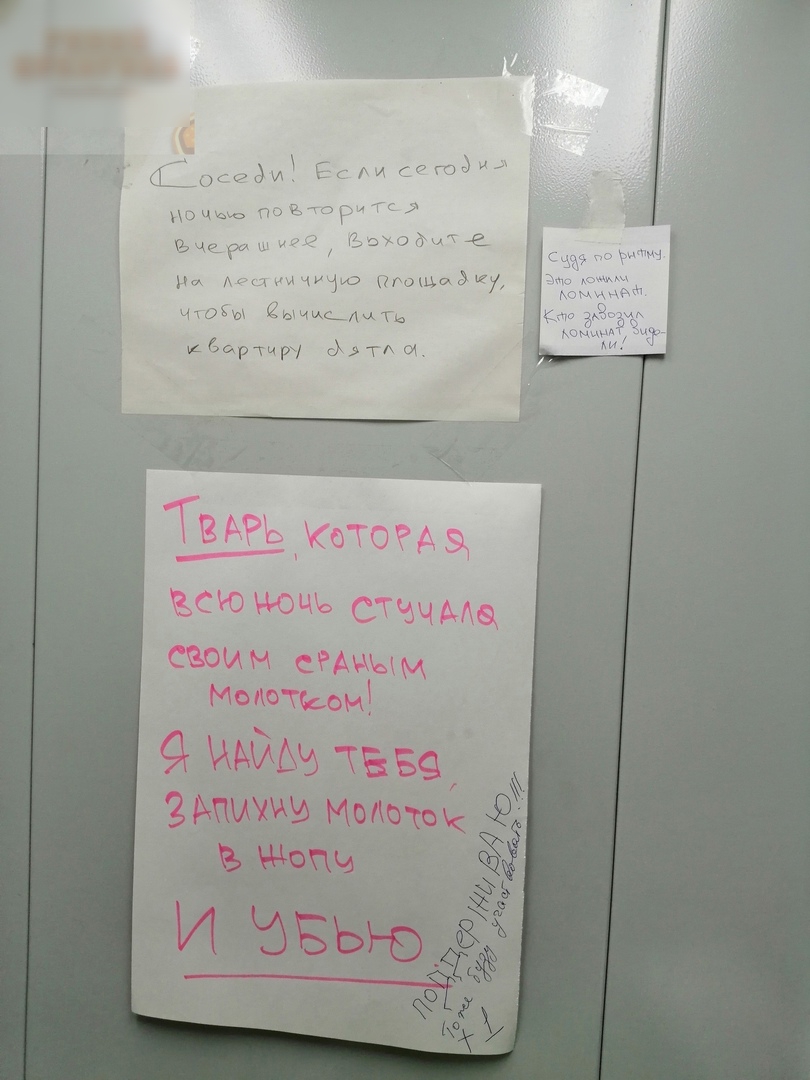 Соседи! Если сегодня
ночью повторится
вчерашнее, выходите
на лестничную площадку,
чтобы вычислить
квартиру дятла.
Судя по ритму.
Это ложили
ломинат.
Кто завозил
ломинат видо-
ли!
Тварь, которая
всю ночь стучала
своим сраным
молотком!
Я найду тебя,
запихну молоток
в жопу
и убью
ПОДДЕРЖИВАЮ!!!
Тоже буду участвовать